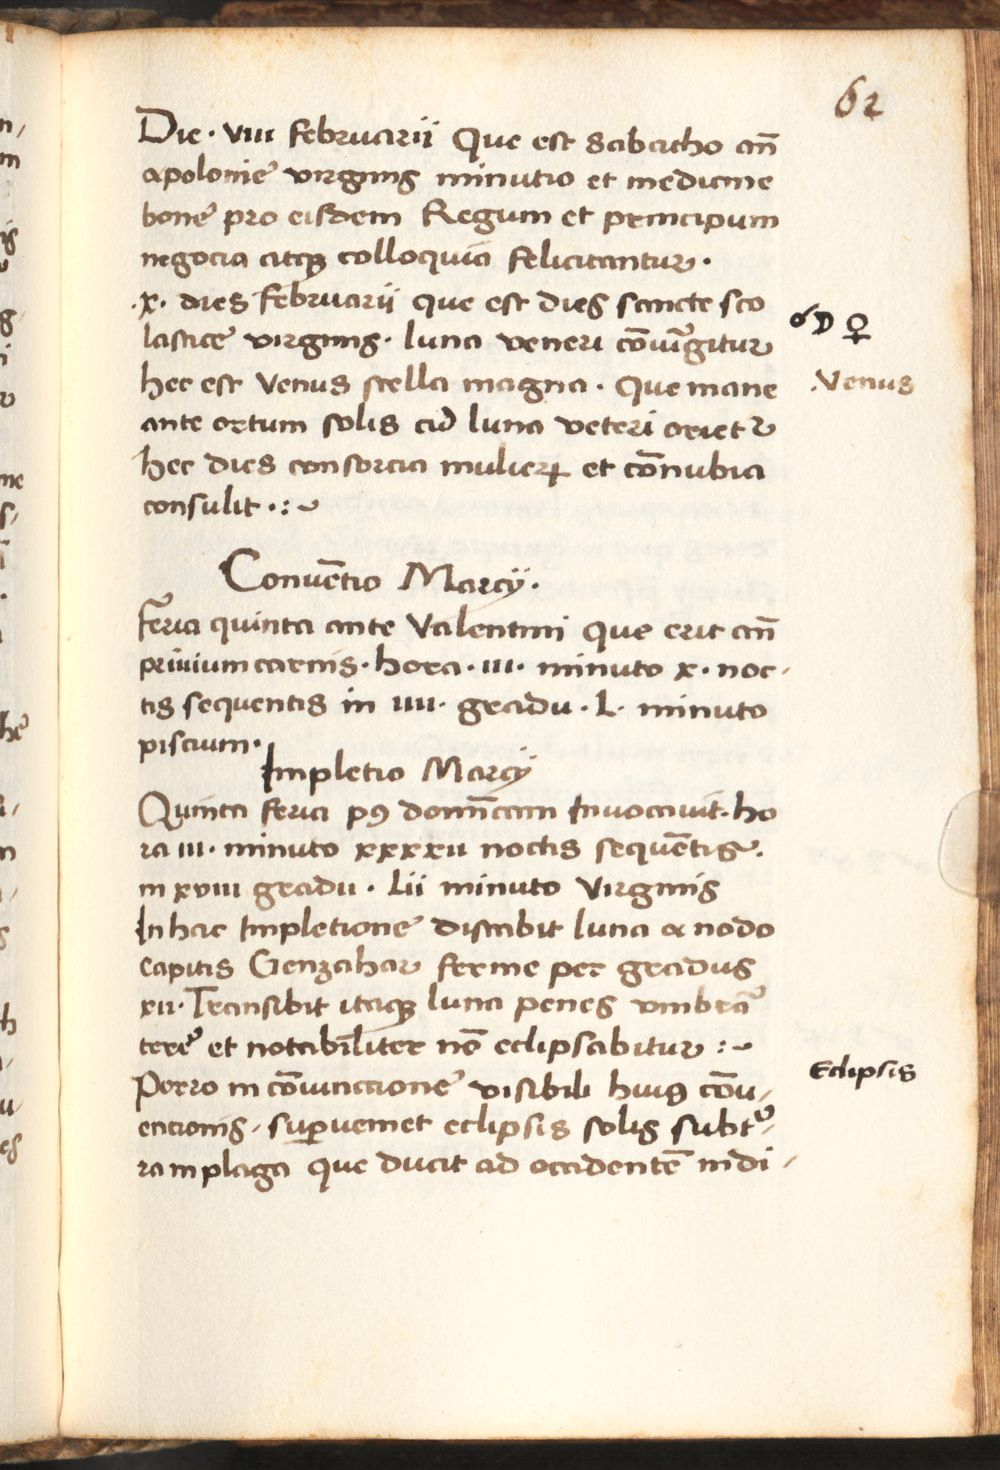 62
Die · viii februarii Que est sabatho an̄
apolonie virginis minutio et medicine
bone pro eisdem Regum et principum
negocia atqꝫ colloquia felicitantur ·
· x · dies februarii que est dies sancte sco
lastice virginis · luna veneri cōiūgitur
☌ ☽ ♀
hec est Venus stella magna · Que mane
· Venus
ante ortum solis cū luna veteri orietr
hec dies consorcia mulieꝝ et cōnubia
consulit · : ~
Convētio Marcij ·
feria quinta ante Valentini que erit an̄
privium carnis · hora · iii · minuto x · noc -
tis sequentis in iiii · gradu · L · minuto
piscium ·
Impletio Marcij
Quinta feria pꝰ domīcam Invocavit · ho
ra iii · minuto xxxxii noctis sequētis ·
in xviii gradu · Lii minuto Virginis
In hac Impletione distabit luna a nodo
capitis Genzahar ferme per gradus
xii · Transibit itaqꝫ luna penes vmbrā
tere et notabiliter nō eclipsabitur : ~
Porro in cōiunctione visibili huiꝰ cōnv -
Eclipsis
encionis · suꝑveniet eclipsis solis subt -
ram plaga que ducit ad occidentē indi -